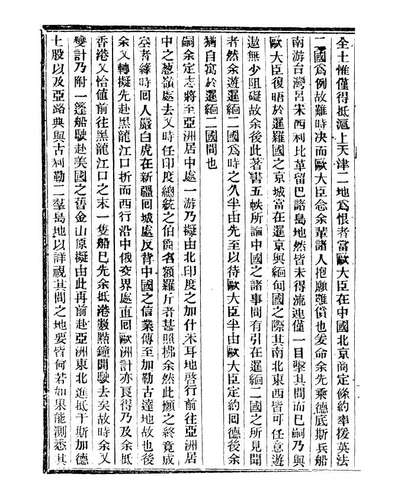 全土惟僅得抵滬上天津二地為恨者當歐大臣在中國北京商定條約率援英法
二國為例故難時決而歐大臣念余輩諸人抱願難償也爰命余先乘德底斯兵船
南游台灣呂宋西利比革留巴諸島地然皆未得流連僅一目擊其間而已嗣乃與
歐大臣復晤於暹羅國之京城當在暹京與緬甸國之際其南北東西皆可任意遊
遨無少阻礙故余後此著書五帙所論中國之諸事間有引在暹緬二國之所見聞
者然余遊暹緬二國為時之久半由先至以待歐大臣半由歐大臣定約回德後余
猶自寓於暹緬二國間也
嗣余定志將至亞洲居中處一游乃擬由北印度之加什米耳地啓行前往亞洲居
中之葱嶺處去又時任印度總統之伯爵名額羅斤者甚照拂余然此願之終竟成
空者緣時回人嚴白虎在新疆回城處反背中國之信業傳至加勒古達地故也後
余又轉擬先赴黑龍江口折而西行沿中俄交界處直回歐洲計亦良得乃及余抵
香港又恰值前往黑龍江口之末一隻船已先余抵港數點鐘開駛去矣時余
變計乃附一篷船駛赴美國之舊金山原擬由此再前赴亞洲東北進抵干斯加德
土股以及亞路典與古柯勒二羣島地以詳視其間之地要皆何若如果能測悉其